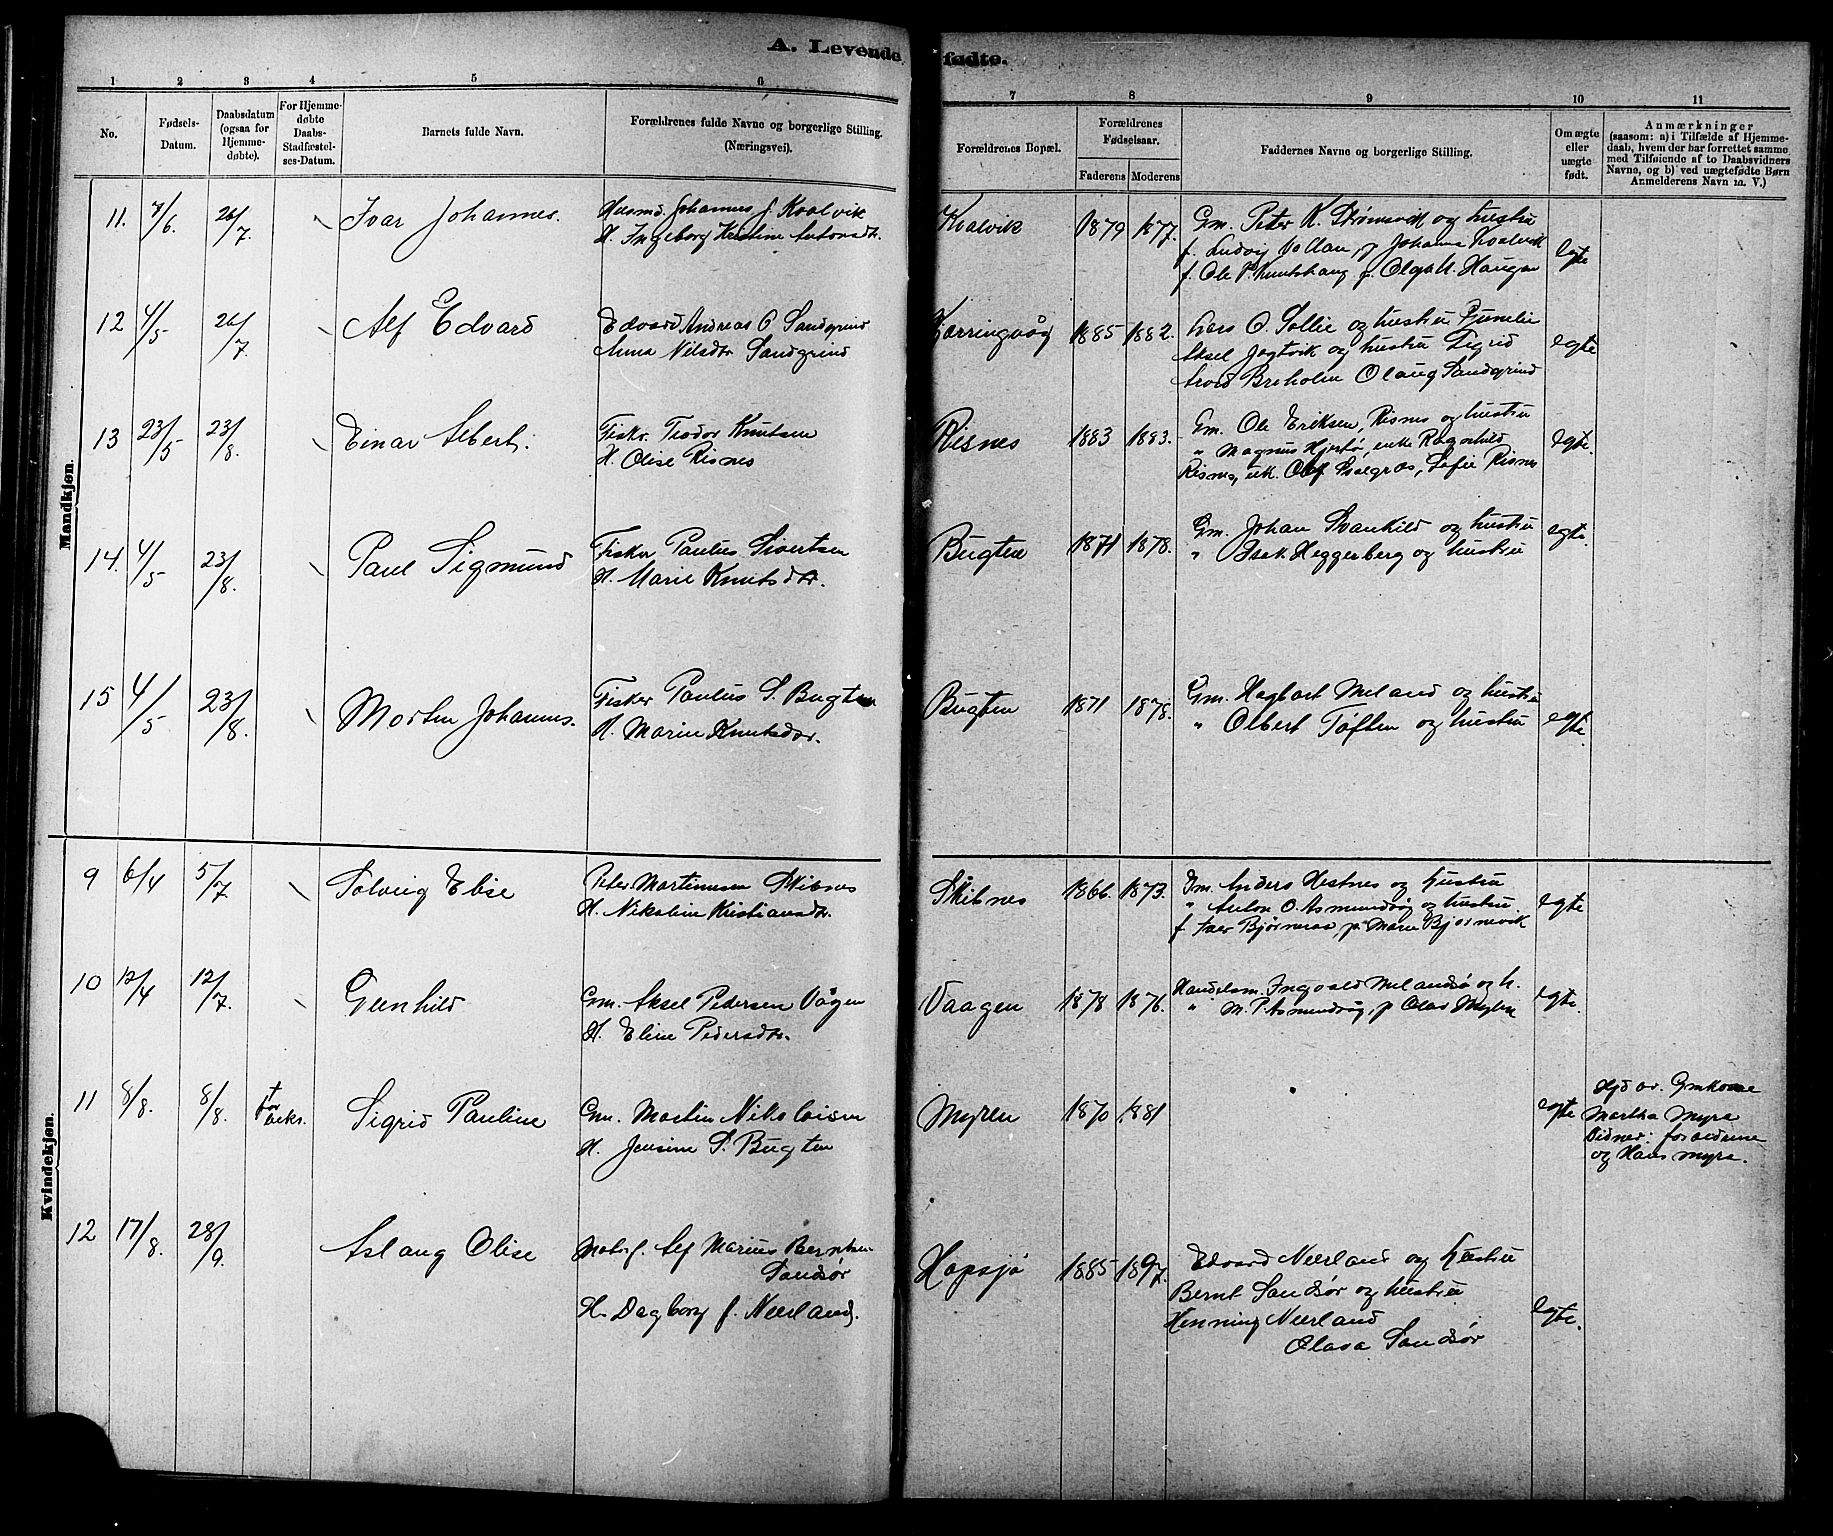 A. Levende fødte.
1 2 3 4 5 6 7 8 9 10 11
No.
Fødsels-Datum.
Daabsdatum (ogsaa for Hjemme-døbte).
For Hjemme-døbte Daabs-Stadfæstel-ses-Datum.
Barnets fulde Navn.
Forældrenes fulde Navne og borgerlige Stilling.
(Næringsvei).
Forældrenes Bopæl.
Forældrenes Fødselsaar.
Faderens Moderens
Faddernes Navne og borgerlige Stilling.
Om ægte eller uægte født.
Anmærkninger
(saasom: a) i Tilfælde af Hjemme-
daab, hvem der har forrettet samme
med Tilføiende af to Daabsvidners
Navne, og b) ved uægtefødte Børn
Anmelderens Navn m. V.)
Mandkjøn.
11. 7/6. 26/7. Ivar Johannes.
Husmd. Johannes J. Kvalvik
H. Ingeborg Kristine Antonsdtr.
Kvalvik 1879 1877.
Gm. Peter K. Strømsvik og hustru
f. Ludvig Vollan, p Johanna Kvalvik
f. Ole P. p. Olga M. Haugen
egte
12 4/5 26/7. Alf Edvard
Edvard Andreas O Sandgrind
Anna Nilsdtr Sandgrind
Korringvåg 1885 1882.
Lars O. Sollie og hustru
Aksel Jøgtvik og hustru Sigrid
Arvid Breholm Olaug Sandgrind
egte
13 23/5 23/8. Einar Albert.
Fiskr. Teodor Knutsen
H. Olise Risnes
Risnes 1883 1883.
Gm. Ole Eriksen, Risnes og hustru
" Magnus Hjertø, enke Ragnhild
Risnes, uk. Olaf Sivie Risnes
egte.
14. 4/5 23/8. Paul Sigmund
Fisker Paulus Sivertsen
H. Marie Knutsdtr.
Bugten 1871 1878.
Gm. Johan Svankild og hustru
" Isak Heggerberg og hustru
egte.
15 4/5 23/8. Morten Johannes.
Fisker Paulus S. Bugten
H. Marie Knutsdtr.
Bugten 1871 1878.
Gm. Hagbart Meland og hustru
" Olbert Tøften og hustru
egte.
Kvindekjøn.
9 6/4 5/7. Solveig Elise
Peter Martinusen Skibnes
H. Nikoline Kristiansdtr.
Skibnes 1866. 1873.
Gm. Anders Hestnes og hustru
" Anton O. Asmundvåg og hustru
f. Iver Bjørneraa, p Marie Bjørnevik
egte
10 12/4 12/7. Gunhild
Gm. Aksel Pedersen Vågen
H. Eline Pedersdtr.
Vaagen 1878 1876.
Handelsm. Ingvald Melandsø og h.
" M. P. Asmundvåg, p Olav Myhre
egte.
11 8/8. 8/8. Sigrid Pauline
Gm. Martin Nikolaisen
H. Jensine S. Bugten
Myren 1870 1881
egte
Hjd av. Gmkone
Martha Myra
Vidner: forældrene
og Hans Myra.
12 17/8. 28/9. Aslaug Olise
Motorf. Alf Marius Berntsen
Sandsør
H. Dagborg f. Neerland.
Hopsjø 1885 1897.
Edvard Neerland og hustru
Bernt Sandsør og hustru
Henning Neerland
Olava Sandsør
egte.